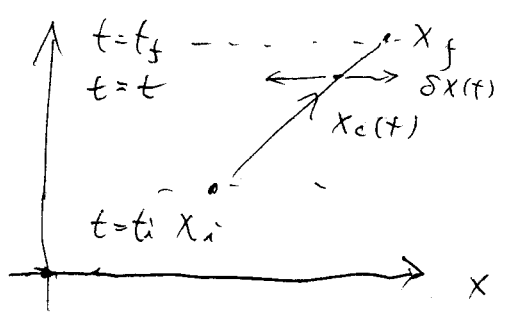 t=t_f x_f
t=t δx(t)
x_c(t)
t=t_i x_i
x